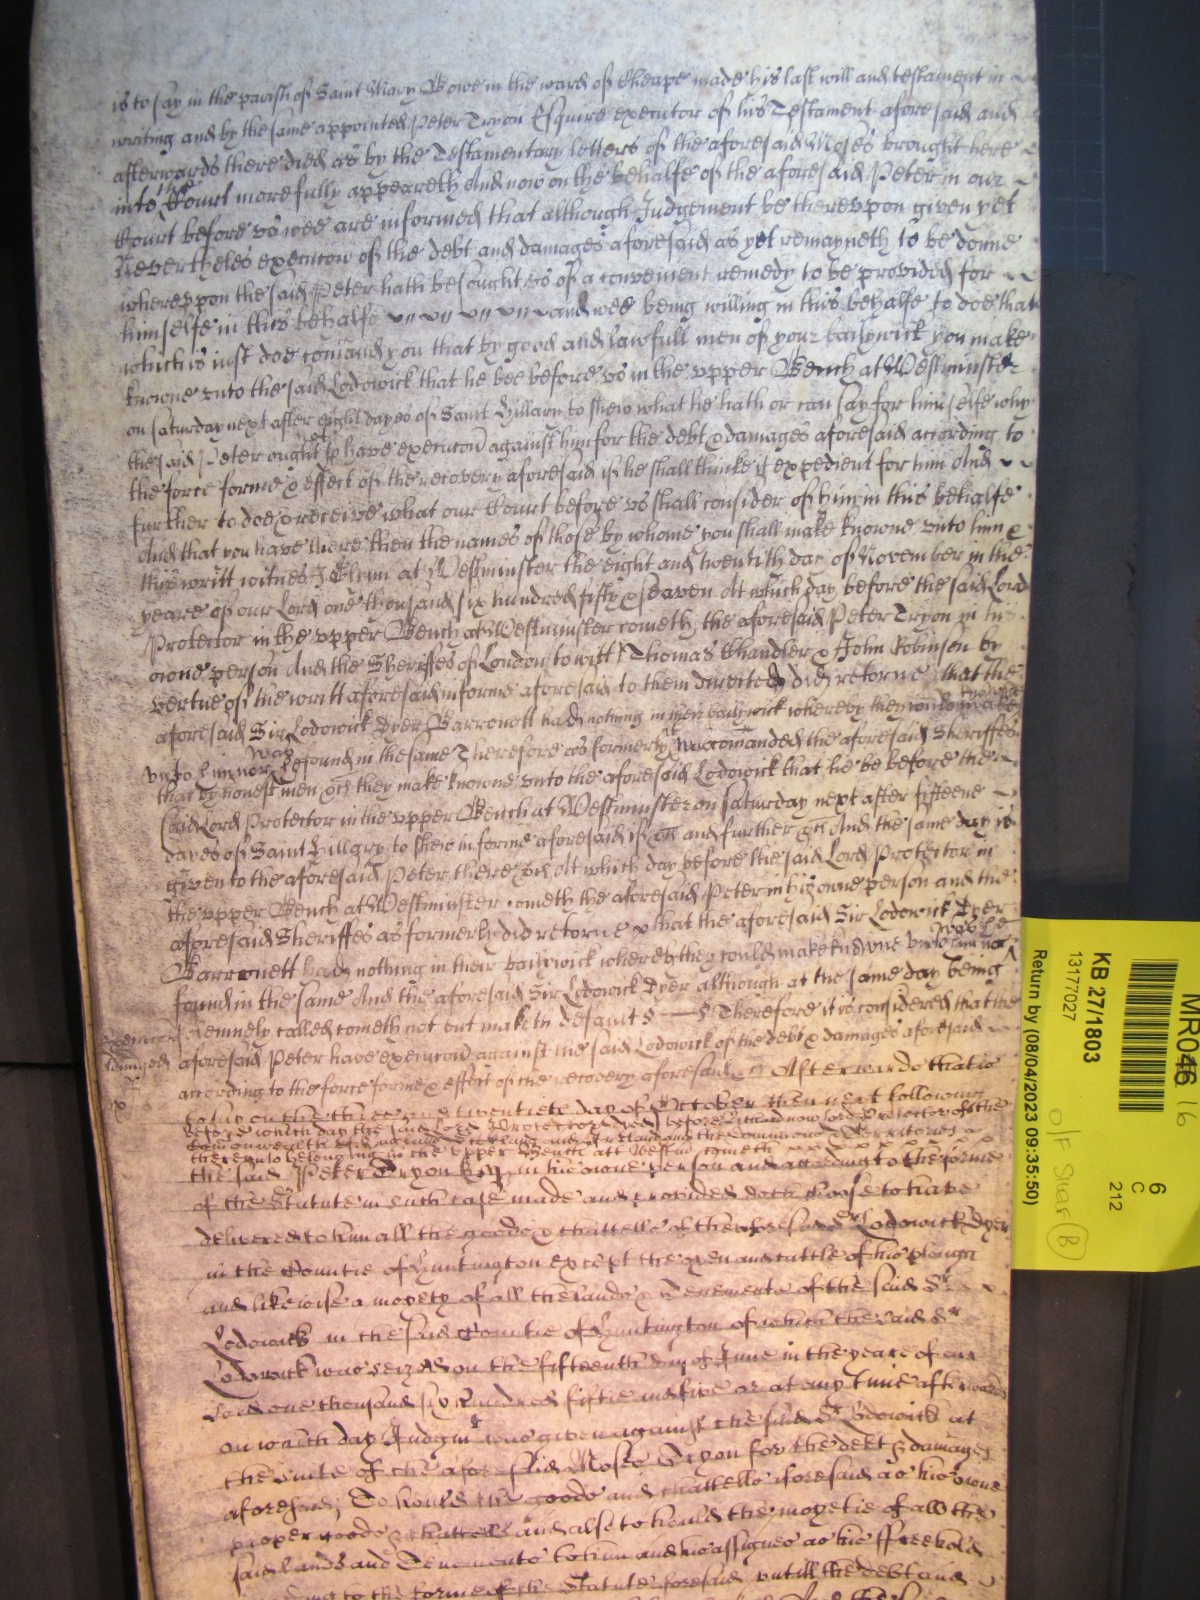 is to say in the parish of Saint Mary Bowe in the ward of Cheape made his last will and testament in
writing and by the same appointed Peter Tryon Esquire executor of his Testament aforesaid and
afterwards there died as by the Testamentary letters of the aforesaid Moses brought here
into the Court more fully appeareth And now on the behalfe of the aforesaid Peter in our
Court before us wee are informed that although Judgement be thereupon given yet
Nevertheles execucon of the debt and damages aforesaid as yet remayneth to be donne
whereupon the said Peter hath besought us of a convenient remedy to be provided for
himselfe in this behalfe and wee being willing in this behalfe to doe that
which is just doe comand you that by good and lawfull men of your bailywick you make
knowne unto the said Lodowick that he bee before us in the upper Bench at Westminster
on saturday next after eight dayes of Saint Hillary to shew what he hath or can say for himselfe why
the said Peter ought not to have execucon against him for the debt & damages aforesaid according to
the force forme & effect of the recovery aforesaid if he shall thinke it expedient for him And
further to doe & receive what our Court before us shall consider of him in this behalfe
And that you have there then the names of those by whome you shall make knowne unto him &
this writt witnes J Glynn at Westminster the eight and twentith day of November in the
yeare of our Lord one thousand six hundred fifty & seaven At which day before the said Lord
Protector in the upper Bench at Westminster cometh the aforesaid Peter Tryon in his
owne person And the Sheriffes of London to witt Thomas Chandler & John Robinson by
vertue of the writt aforesaid in forme aforesaid to them directed did retorne that the
aforesaid Sir Lodowick Dyer Barronett had nothing in their bailywick whereby they could make knowne
unto him nor was he found in the same Therefore as formerly it was comanded the aforesaid Sheriffes
that by honest men &c they make knowne unto the aforesaid Lodowick that he be before the
said Lord Protector in the upper Bench at Westminster on saturday next after fifteene
dayes of Saint Hillary to shew in forme aforesaid if &c and further &c And the same day is
given to the aforesaid Peter there &c At which day before the said Lord Protector in
the upper Bench at Westminster cometh the aforesaid Peter in his owne person and the
aforesaid Sheriffes as formerly did retorne & that the aforesaid Sir Lodowick Dyer
Barronett had nothing in their bailywick whereby they could make knowne unto him nor was he
found in the same And the aforesaid Sir Lodowick Dyer although at the same day being
solemnely called cometh not but maketh default Therefore it is considered that the
aforesaid Peter have execucon against the said Lodowick of the debt & damages aforesaid
according to the force forme & effect of the recovery aforesaid &c Afterwards that is
to say on the three and twentieth day of October then next following
before which day the said Lord Protector dyed before Richard now lord Protector of the
Commonwealth of England Scotland and Ireland and the Dominions & Territories
thereunto belonging in the upper Bench att Westmr cometh
the said Peter Tryon Esqr in his owne person and according to the forme
of the Statute in such case made and provided doth choose to have
delivered to him all the goods & chattells of the aforesaid Sr Lodowick Dyer
in the Countie of Huntington except the oxen and cattle of his plough
and likewise a moyety of all the lands & Tenements of the said Sr
Lodowick in the said Countie of Huntington of which the said Sr
Lodowick was seized on the fifteenth day of June in the yeare of our
Lord one thousand six hundred fiftie and five or at any time afterwards
on which day Judgmt was given against the said Sr Lodowick at
the suite of the aforesaid Moses Tryon for the debt & damages
aforesaid To hould the goods and chattells aforesaid as his owne
proper goods & chattells and also to hould the moyetie of all the
said Lands and Tenements to him and his assignes as his ffreehold
according to the forme of the Statute aforesaid untill the debt and
MR046 16
KB 27/1803
13177027
Return by (08/04/2023 09:35:50)
6
C
212
O/F Shelf B